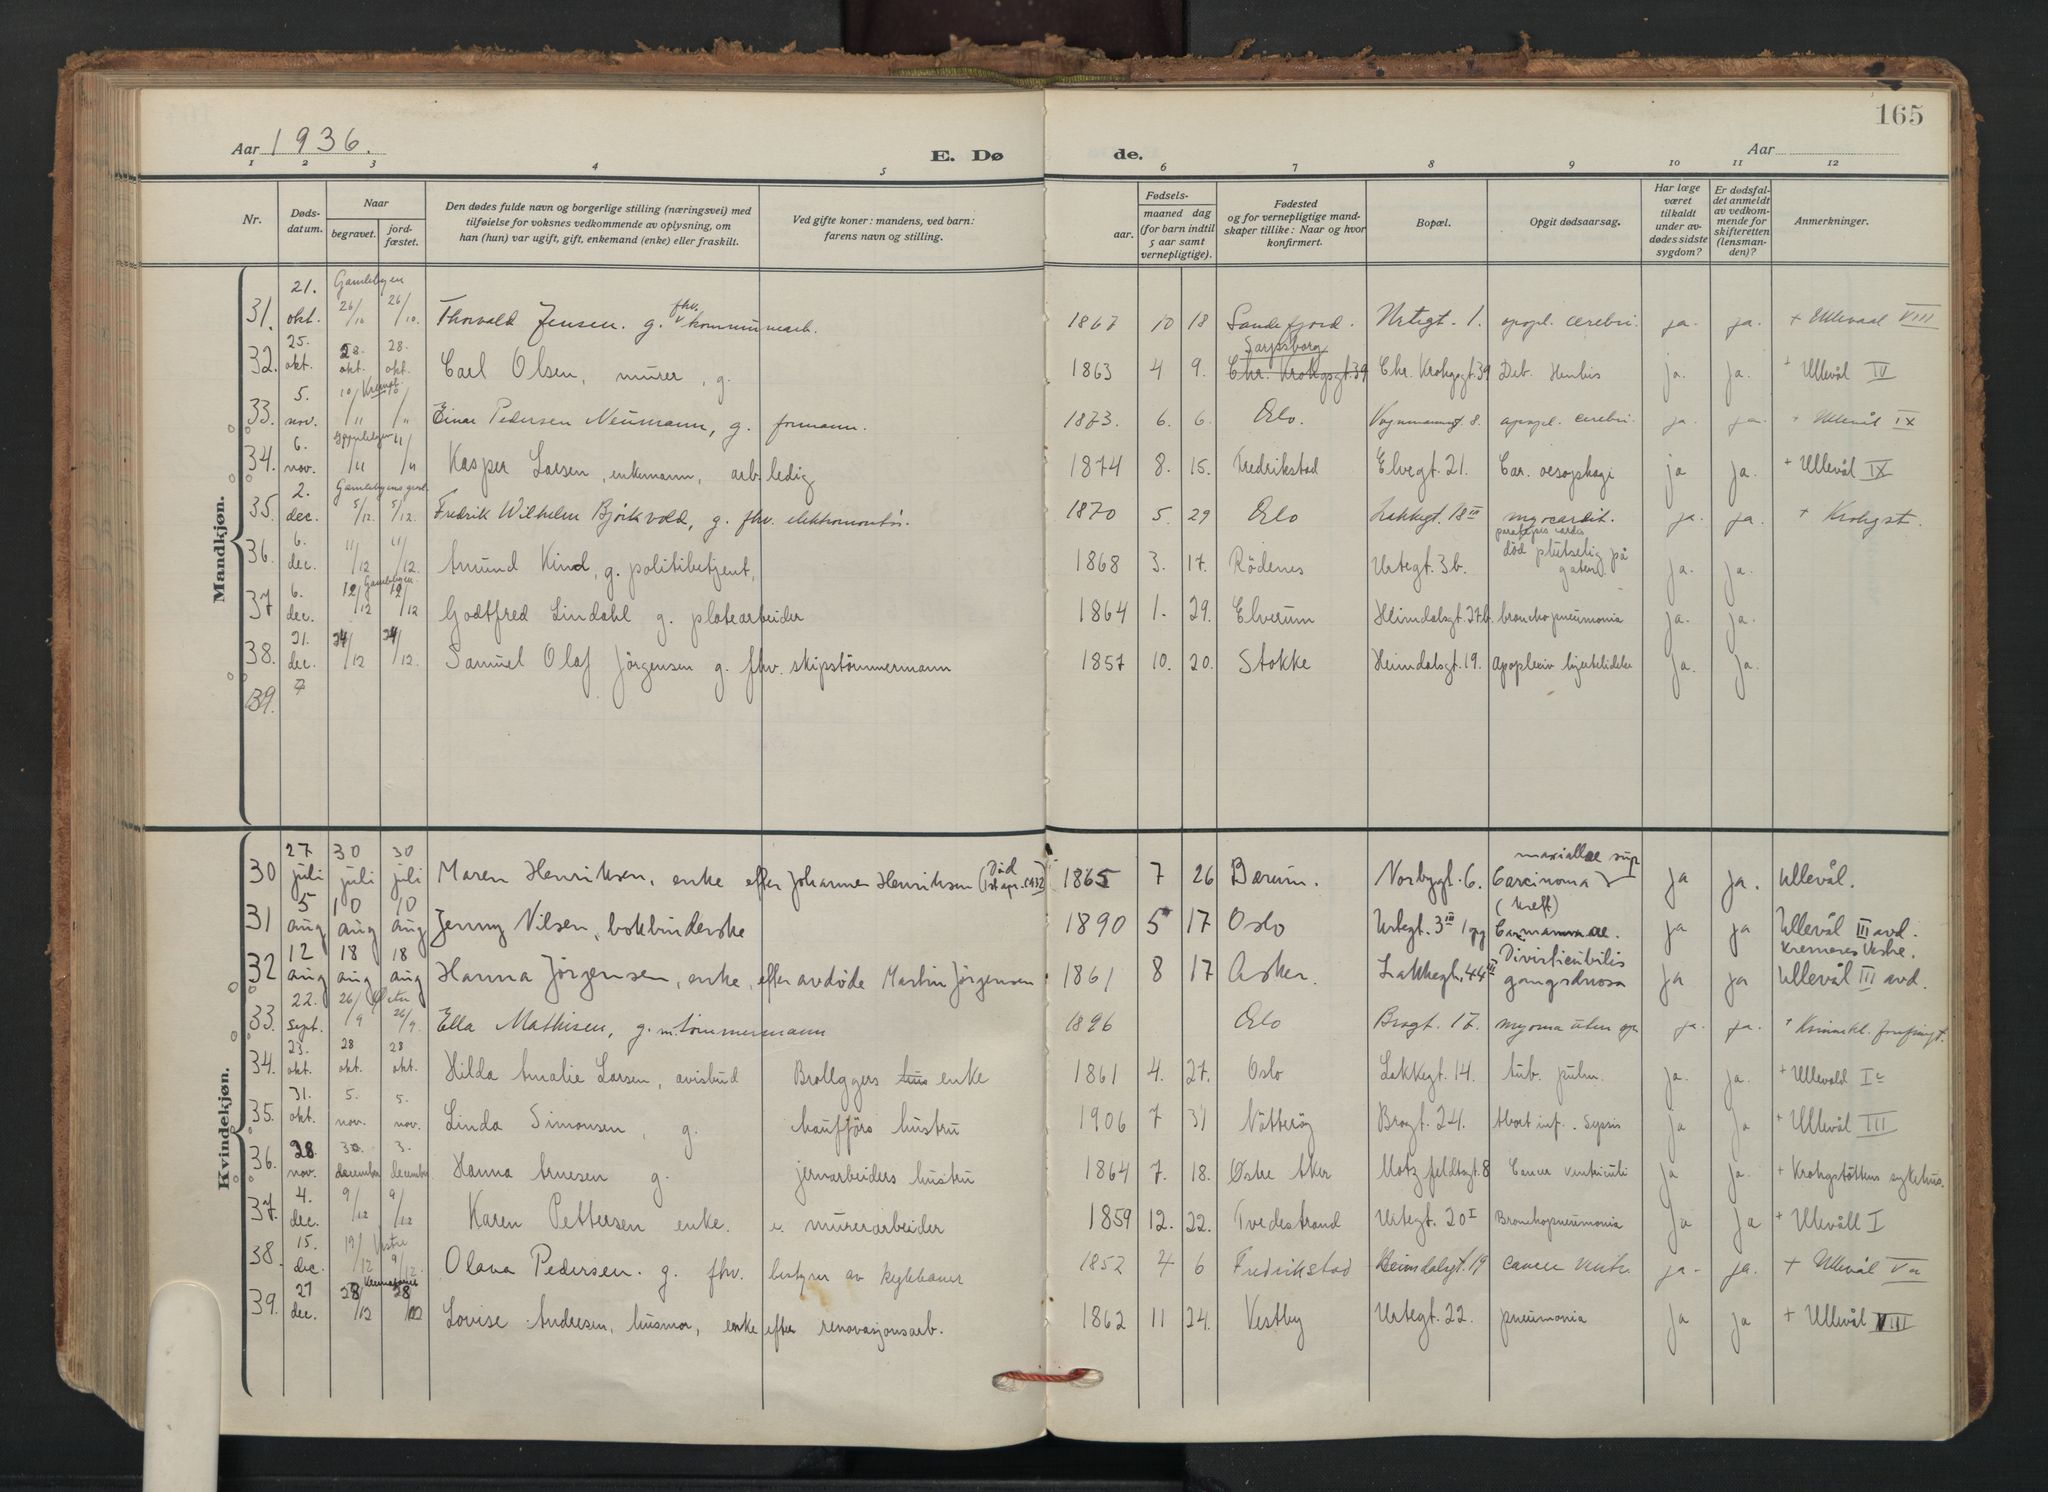 165
Aar 1936.
E. Dø
de.
Aar
1 2 3 4 5 6 7 8 9 10 11 12
Nr.
Døds-
datum.
Naar
begravet.
jord-
fæstet.
Den dødes fulde navn og borgerlige stilling (næringsvei) med
tilføielse for voksnes vedkommende av oplysning, om
han (hun) var ugift, gift, enkemand (enke) eller fraskilt.
Ved gifte koner: mandens, ved barn:
farens navn og stilling.
Fødsels-
aar.
maaned dag
(for barn indtil
5 aar samt
vernepligtige).
Fødested
og for vernepligtige mand-
skaper tillike: Naar og hvor
konfirmert.
Bopæl.
Opgit dødsaarsag.
Har læge
været
tilkaldt
under av-
dødes sidste
sygdom?
Er dødsfal-
det anmeldt
av vedkom-
mende for
skifteretten
(lensman-
den)?
Anmerkninger.
Mandkjøn.
21. Gamlebyen
31. okt. 26/10 26/10. Thorvald Jensen. g. fhv. kommunearb. 1867 10 18 Sandefjord. Urtegt. 1. apopl. cerebri. ja. ja. + Ullevaal VIII
25. 28. 28. Sarpsborg
32. okt. okt. okt. Carl Olsen, murer, g. 1863 4 9. Chr. Krohgsgt. 39 Chr. Krohgsgt. 39 Deb. ja. ja. + Ullevål IV
5. 10/
33. nov. /11 /11 Einar Pedersen Neumann, g. formann. 1873. 6. 6. Oslo. Vognmannsgt 8. apopl. cerebri. ja. ja. + Ullevål IX
6. Gamlebyen 11/
34. nov. /11 /11 Kasper Larsen, enkemann, arb.ledig 1874 8. 15. Fredrikstad Elvegt. 21. Car. oesophagi ja ja. + Ullevål IX
2. Gamlebyens
35. dec. 5/12. 5/12. Fredrik Wilhelm Björkvold, g. fhv. elektromontör. 1870 5. 29 Oslo Lakkegt. 18 III myocardit. ja. ja. + Krohgst.
6. 11/ 11/ død plutselig på
36. dec. /12 /12. Amund Kind, g. politibetjent, 1868 3. 17. Rödenes Urtegt. 3b. gaten. ja. ja.
6. 12/ Gamlebyen 12/
37. dec. /12 /12 Godtfred Lindahl g. platearbeider 1864 1. 29. Elverum Heimdalsgt. 27b. bronchopneumonia ja. ja.
21. 24/ 24/
38. dec. /12 /12. Samuel Olaf Jörgensen g. fhv. skipstömmermann 1857 10. 20. Stokke Heimdalsgt. 19. hjertelidelse ja. ja.
39.
Kvindekjøn.
27 30 30 Død maxillae sup
30 juli juli juli Maren Henriksen, enke efter Johannes Henriksen (1st apr. 1932) 1865 7 26 Bærum. Norbygt. 6. Carcinoma ja ja. Ullevål.
5 10 10 (Kreft)
31 aug aug aug Jenny Nilsen, bokbinderske 1890 5 17 Oslo Urtegt. 3 III Ca. mammae. ja ja Ullevål III avd.
12 18 18 Kremeres Vestre.
32 aug aug aug Hanna Jörgensen, enke, efter avdöde Martin Jörgensen 1861 8 17 Asker. Lakkegt. 44 III ja ja Ullevål III avd.
22. 26/ Østre
33. sept. /9 26/9. Ella Mathisen, g. m. tømmermann 1896 Oslo Brogt. 17. myoma uteri op ja. ja. + Kvinnekl.
23. 28 28
34. okt. okt. okt. Hilda Amalie Larsen, avisbud Broleggers enke 1861 4. 27. Oslo Lakkegt. 14. tub. pulm. ja. ja. + Ullevål I
31. 5. 5.
35. okt. nov. nov. Linda Simonsen, g. chaufførs hustru 1906 7 31 Nötteröy Brogt. 24. Abort inf. Sepsis ja ja + Ullevål III
28. 3. 3.
36. nov. december december Hanna Arnesen g. jernarbeiders hustru 1864 7. 18. Østre Aker Motzfeldtsgt. 8 Cancer ventriculi ja ja. + Krohgstöttens sykehus.
4. 9/ 9/
37. dec. /12 /12 Karen Pettersen enke. e. murerarbeider 1859 12. 22. Tvedestrand Urtegt. 20 I Bronchopneumonia ja ja + Ullevåll I
15. 19/ Vestre
38. dec. /12 9/12. Olava Pedersen. g. fhv. bestyrer av 1852 4 6 Fredrikstad Heimdalsgt. 19 cancer ventr. ja. ja. + Ullevål V
27 28 Krematoriet 28
39. dec. /12 /12 Lovise Andresen, husmor, enke efter renovasjonsarb. 1862 11 24. Vestby Urtegt. 22. pneumonia ja ja + Ullevål VIII